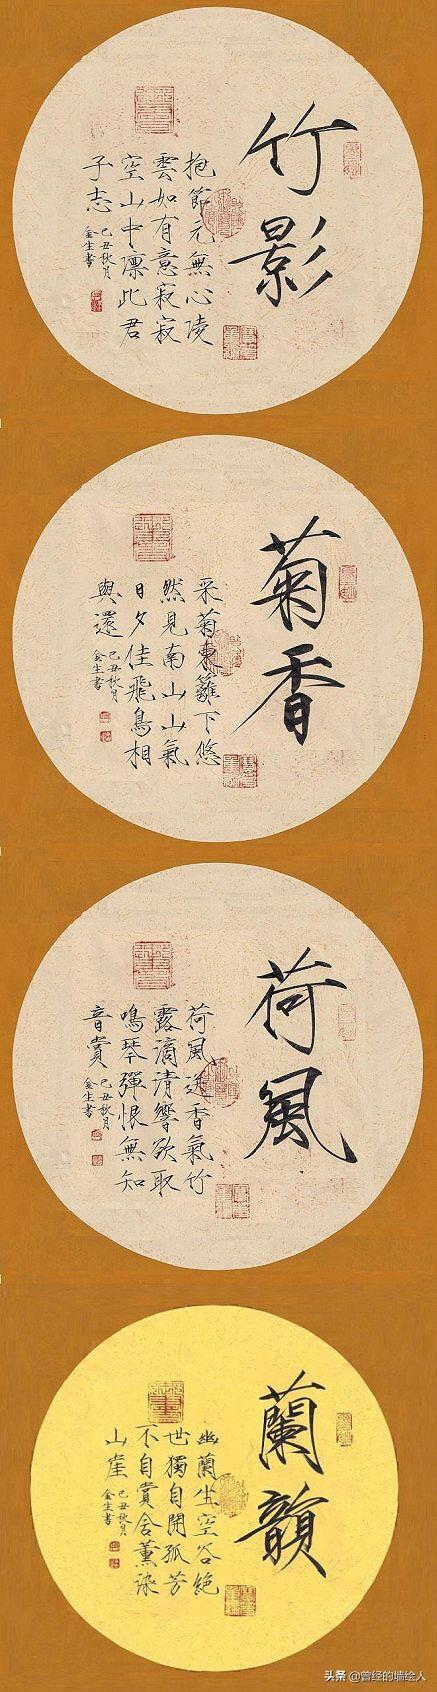 竹影
抱節元無心陵
雲如有意寂寂
空山中凛此君
子志
己丑秋月
金生書
菊香
采菊東籬下悠
然見南山山氣
日夕佳飛鳥相
與還
己丑秋月
金生書
荷風
荷風送香氣竹
露滴清響欲取
鳴琴彈恨無知
音賞
己丑秋月
金生書
蘭韻
幽蘭生空谷絶
世獨自開孤芳
不自賞含薰染
山崖
己丑秋月
金生書
头条 @曾经的墙绘人